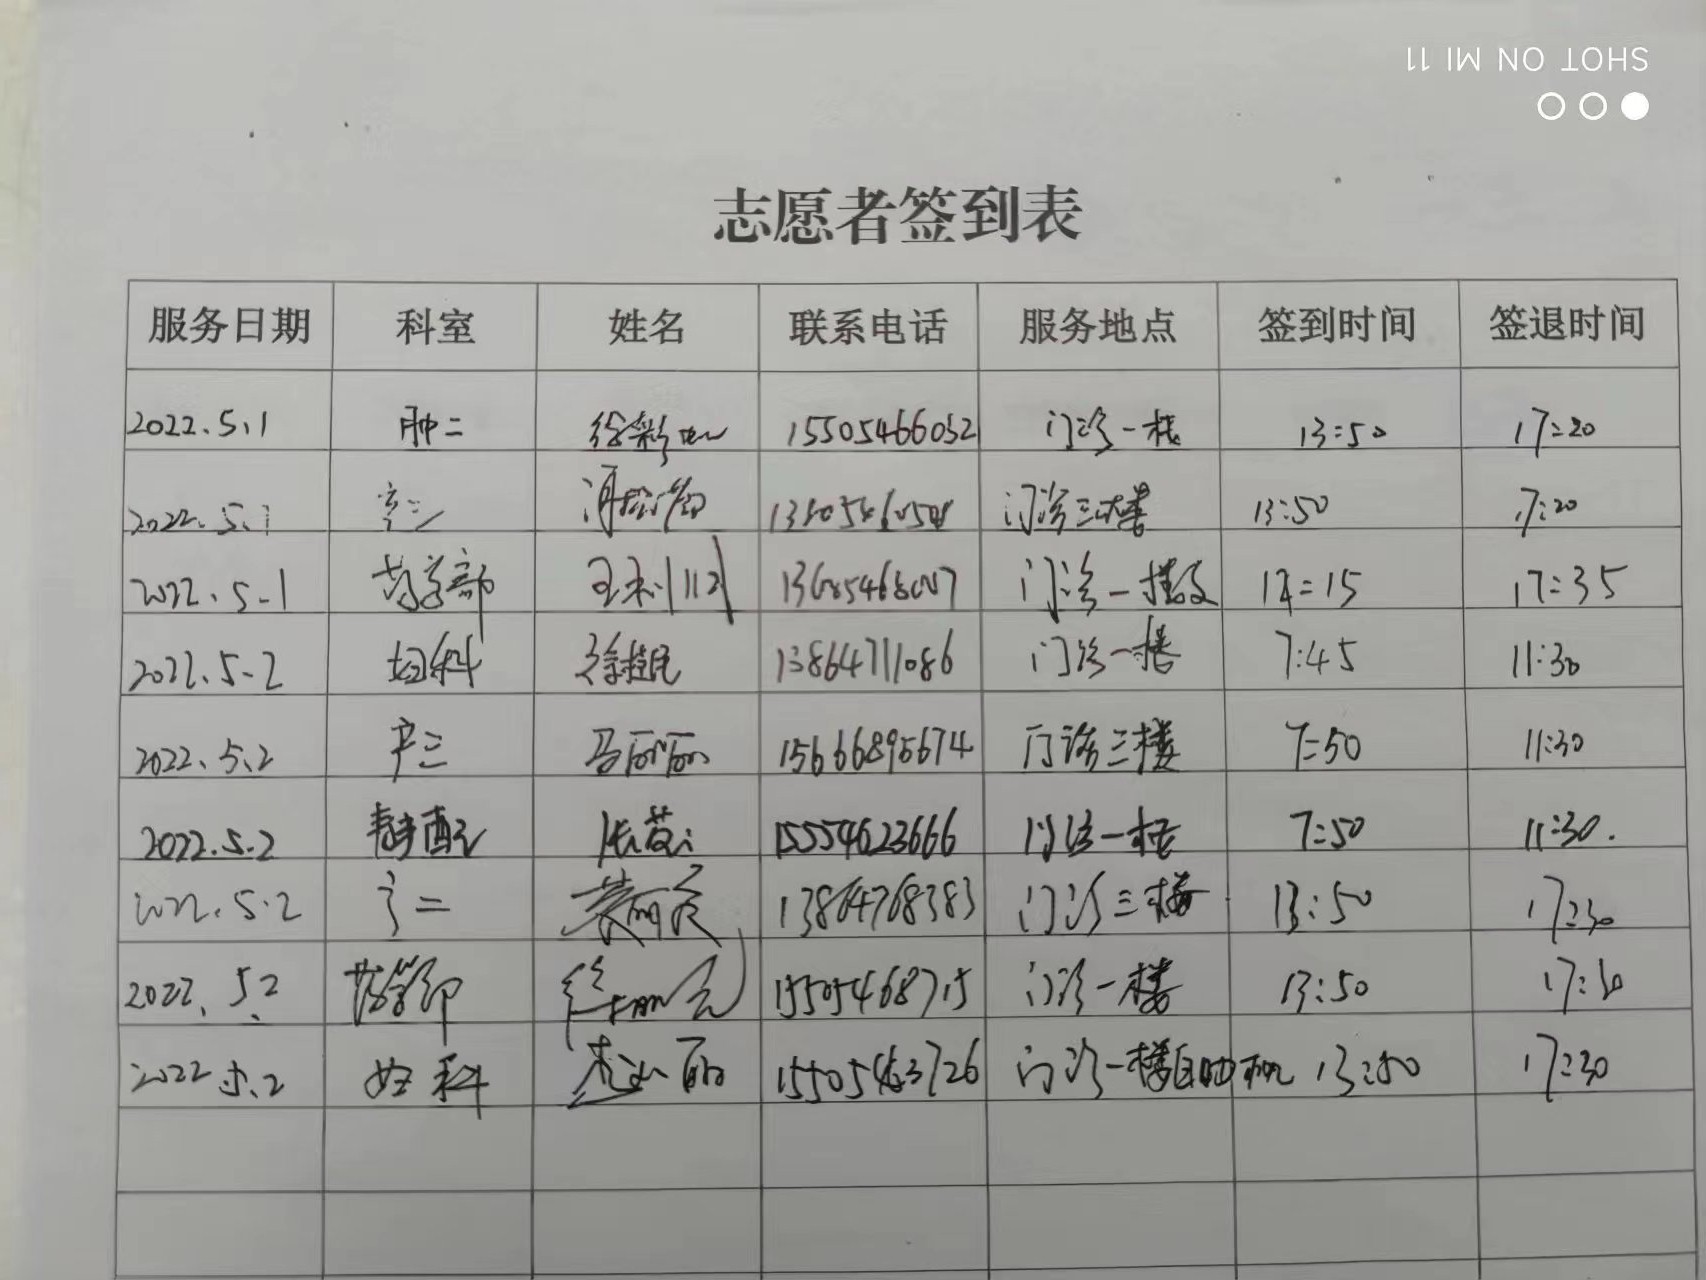 SHOT ON MI 11
志愿者签到表
服务日期 科室 姓名 联系电话 服务地点 签到时间 签退时间
2022.5.1 肿二 徐彩 15505466032 门诊一楼 13:50 17:20
2022.5.1 产二 门诊三楼 13:50 17:20
2022.5-1 药学部 门诊一楼 17:35
2022.5-2 妇科 徐 13864711086 门诊一楼 7:45 11:30
2022.5.2 产三 马丽丽 15666895674 门诊三楼 7:50 11:30
2022.5.2 静配 张 15554623666 门诊一楼 7:50 11:30.
2022.5.2 产二 13864768383 门诊三楼 13:50 17:30
2022.5.2 药学部 15505468715 门诊一楼 13:50 17:30
2022.5.2 妇科 15505463726 门诊一楼自助机 13:50 17:30